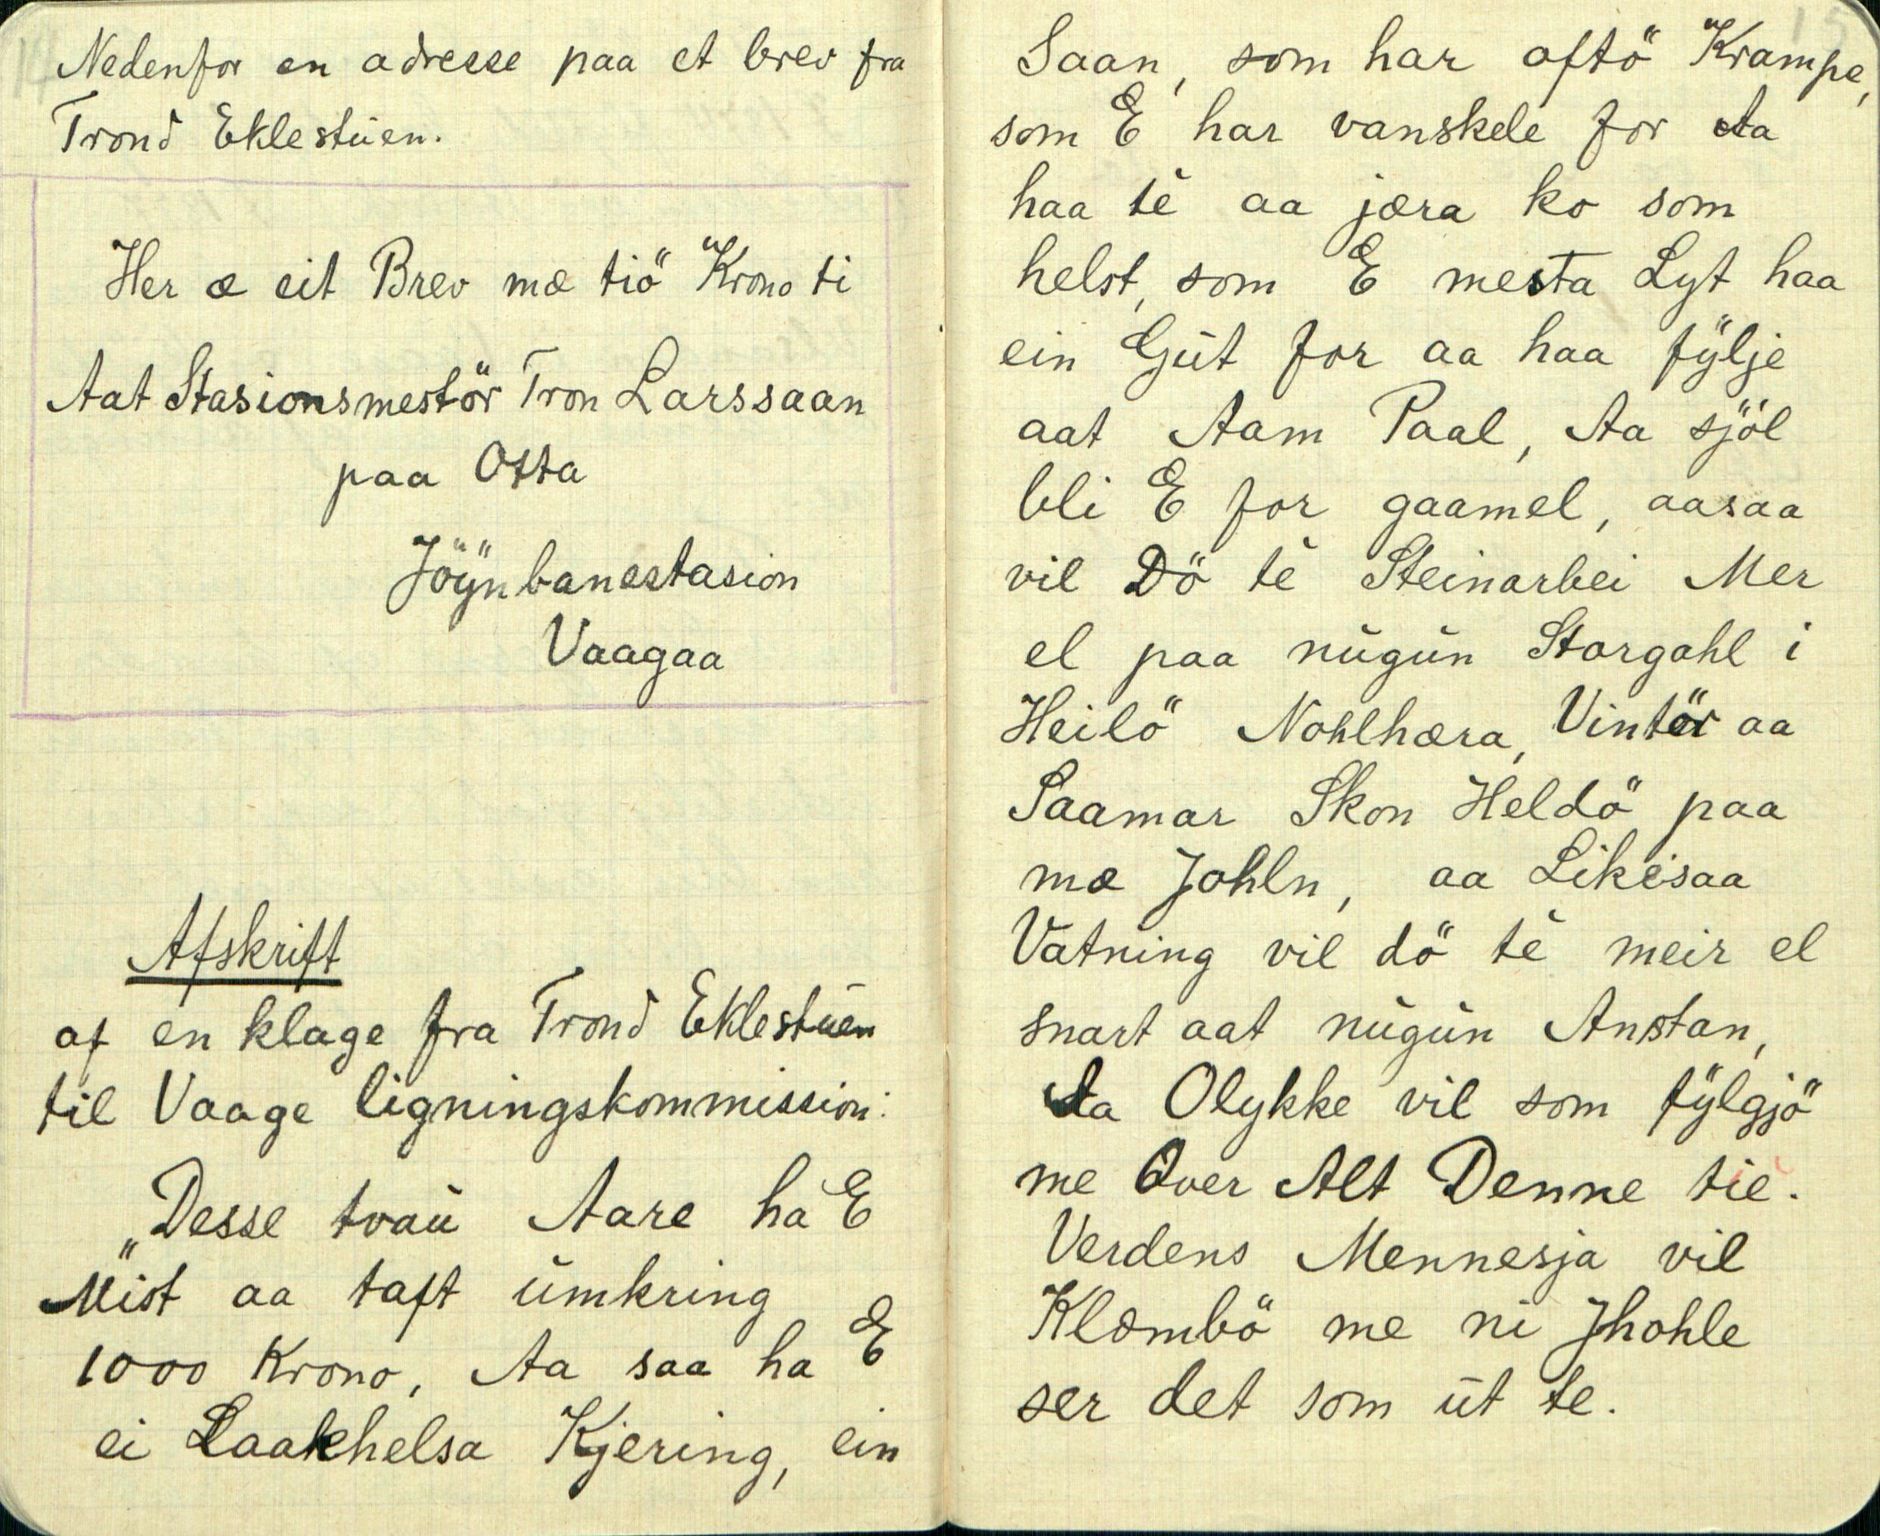 14
Nedenfor en adresse paa et brev fra
Trond Eklestuen.
Her æ eit Brev mæ tiö Krono ti
Aat Stasionsmestör Tron Larssaan
paa Otta
Jöÿnbanestasion
Vaagaa
Afskrift
af en klage fra Trond Eklestuen
til Vaage ligningskommission:
„Desse tvaù Aare ha E
Mist aa taft ùmkring
1000 Krono, Aa saa ha E
ei Laakhelsa Kjering, ein
15
Saan, som har oftö Krampe,
som E har vanskele for Aa
haa tè aa jæra ko som
helst, som E mesta Lyt haa
ein Gùt for aa haa fÿlje
aat Aam Paal, Aa sjöl
bli E for gaamel, aasaa
vil Dö tè Steinarbei Mer
el paa nùgùn Storgohl i
Heilö Nohlhæra, Vintör aa
Saamar Skon Heldö paa
mæ Johln, aa Likesaa
Vatning vil dö tè meir el
snart aat nùgùn Anstan,
Aa Olykke vil som fÿlgjö
me Over Alt Denne tiè.
Verdens Mennesja vil
Klæmbö me ni Jhohle
ser det som ùt te.